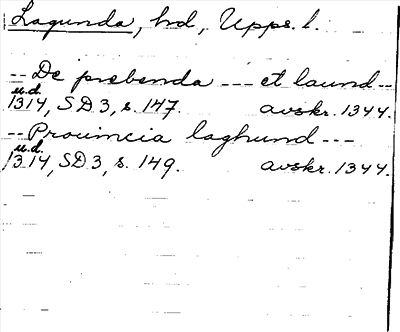 Lagunda, hd, Upps. l.
-- De prebenda --- et laund --
u.d.
1314, SD 3, s. 147. avskr. 1344.
-- Prouincia laghund ---
u.d.
1314, SD 3, s. 149. avskr. 1344.